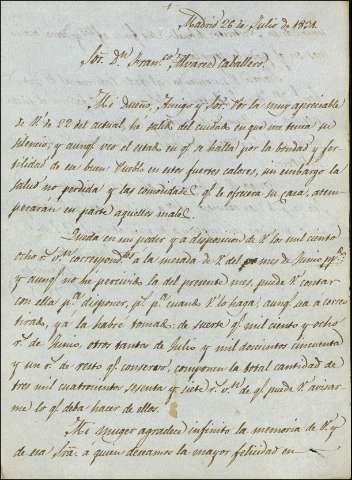 Madrid 26 de Julio de 1831.
Sor. Dn. Franco. Alvarez Caballero.
Mi Dueño, Amigo y Sor. Por la muy apreciable
de V. de 22 del actual, he salido del cuidado en que me tenia su
silencio; y aunqe. veo el estado en qe. se halla por la bondad y fer-
tilidad de su buen Pueblo en estos fuertes calores, sin embargo la
salud no perdida y las comodidades qe. le ofrecera su casa, atem-
perarán en parte aquellos males.
Queda en mi poder y a disposicion de V. los mil ciento
ocho rs. vn. correspondtes. a la mesada de V. del mes de Junio
y aunqe. no he percibido la del presente mes, puede V. contar
con ella pa. disponer, ps. pa. cuando V. lo haga; aunqe. sea a corre
tirado, ya la habré tomado: de suerte qe. mil ciento y ocho
rs. de Junio, otros tantos de Julio y mil doscientos cincuenta
y un rs. de resto qe. conservo, componen la total cantidad de
tres mil cuatrocientos sesenta y siete rs. vn. de qe. puede V. avisar
me lo qe. deba hacer de ellos.
Mi muger agradece infinito la memoria de V. y
de su Sra. a quien deseamos la mayor felicidad en